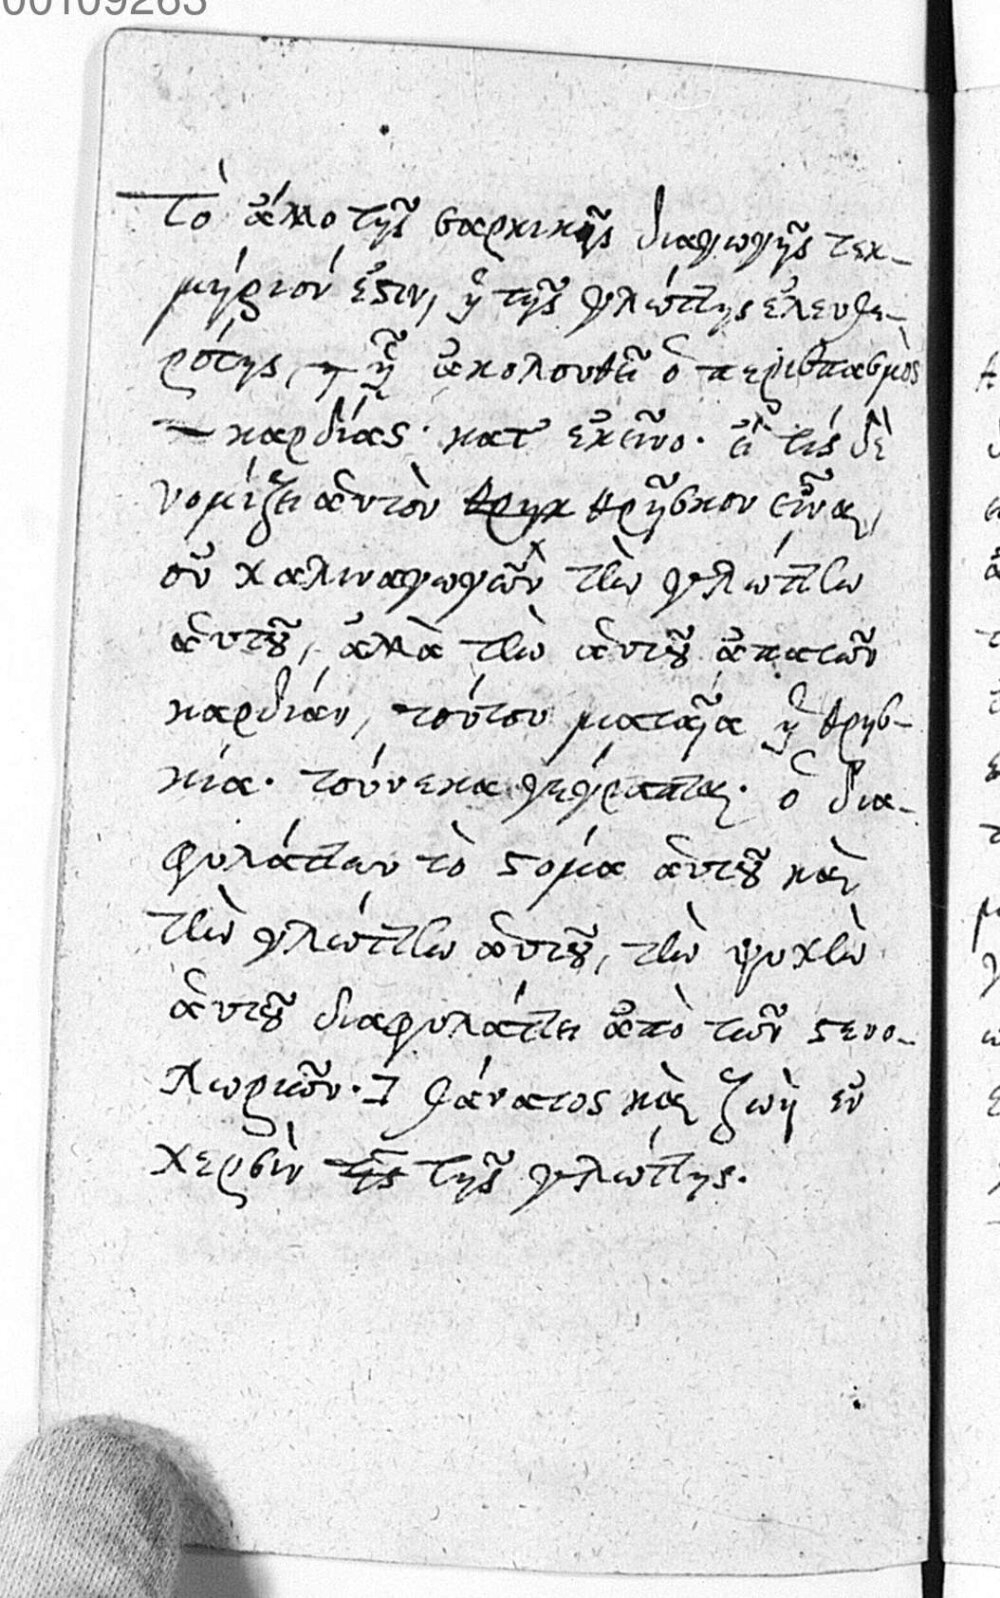 00109263
Τὸ ἄλλο τῆς σαρκικῆς διαγωγῆς τεκ-
μήριόν ἐστιν, ἡ τῆς γλώττης ἐλευθε-
ρότης, ᾗ ἀκολουθεῖ ὁ περισπασμὸς
καρδίας· κατ' ἐκεῖνο· εἴ τις δὲ
νομίζει ἀυτὸν θρησκ θρῆσκον εἶναι,
οὐ χαλιναγωγῶν τὴν γλώττην
ἀυτοῦ, ἀλλὰ τὴν ἀυτοῦ ἀπατῶν
καρδίαν, τούτου ματαῖα ἡ θρησ-
κία. τούνεκα γέγραπται· ὁ δια-
φυλάττων τὸ στόμα ἀυτοῦ καὶ
τὴν γλώττην ἀυτοῦ, τὴν ψυχὴν
ἀυτοῦ διαφυλάττει ἀπὸ τῶν στενο-
χωριῶν. θάνατος καὶ ζωὴ ἐν
χερσὶν τῆς τῆς γλώττης.